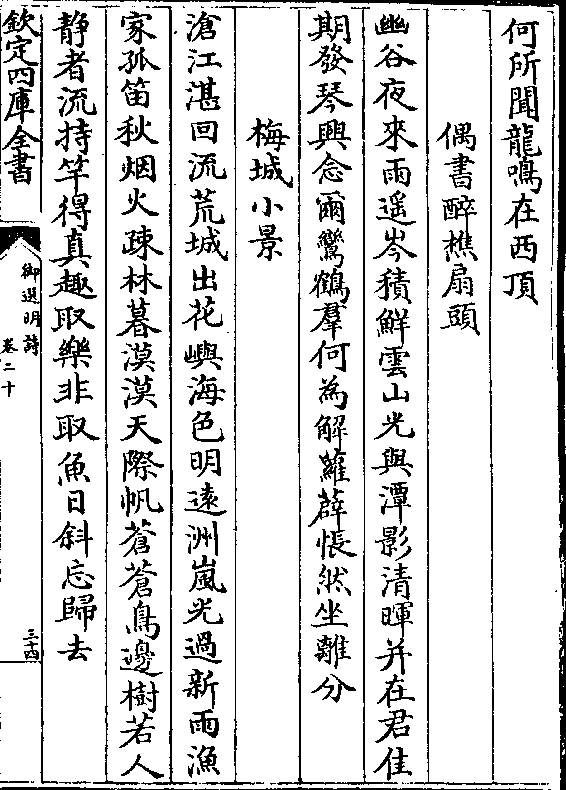 何所聞龍鳴在西頂
偶書醉樵扇頭
幽谷夜來雨遥岑積鮮雲山光與潭影清暉并在君佳
期發琴興念爾鸞鶴羣何為解蘿薜悵然坐離分
梅城小景
滄江湛回流荒城出花嶼海色明遠洲嵐光過新雨漁
家孤笛秋烟火疎林暮漠漠天際帆蒼蒼鳥邊樹若人
静者流持竿得真趣取樂非取魚日斜忘歸去
欽定四庫全書
御選明詩
卷二十
三十四